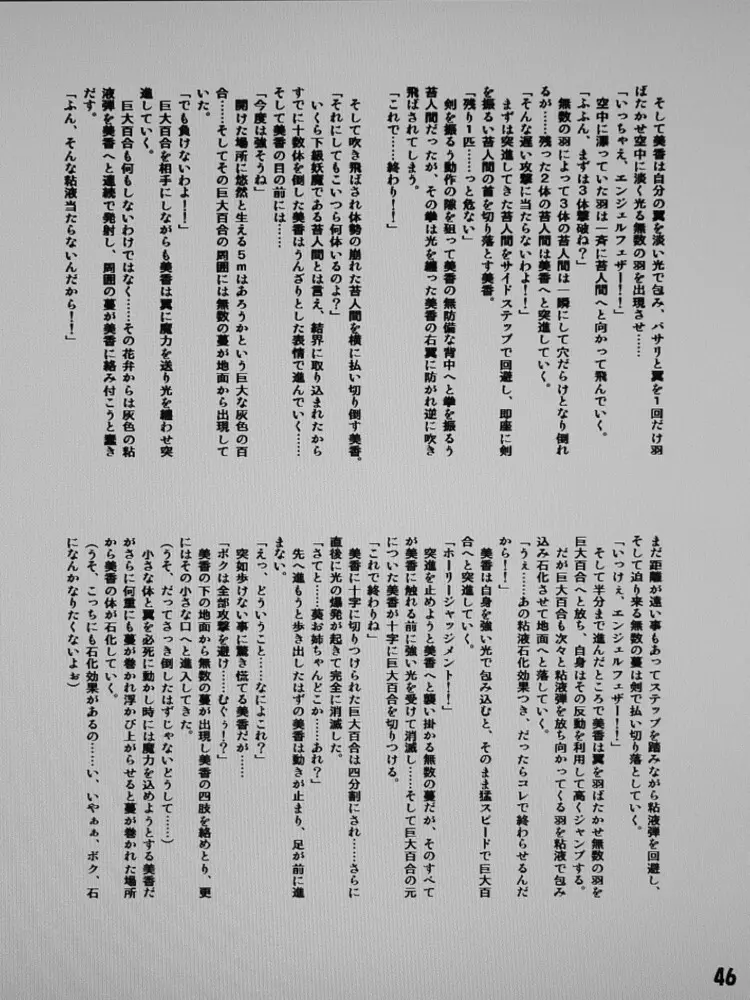 そして美香は自分の翼を淡い光で包み、バサリと翼を1回だけ羽
ばたかせ空中に淡く光る無数の羽を出現させ……
「いっちゃえ、エンジェルフェザー！！」
空中に漂っていた羽は一斉に苔人間へと向かって飛んでいく。
「ふふん、まずは3体撃破ね？」
無数の羽によって3体の苔人間は一瞬にして穴だらけとなり倒れ
るが……残った2体の苔人間は美香へと突進していく。
「そんな遅い攻撃に当たらないわよ！！」
まずは突進してきた苔人間をサイドステップで回避し、即座に剣
を振るい苔人間の首を切り落とす美香。
「残り1匹……っと危ない」
剣を振るう動作の隙を狙って美香の無防備な背中へと拳を振るう
苔人間だったが、その拳は光を纏った美香の右翼に防がれ逆に吹き
飛ばされてしまう。
「これで……終わり！！」
そして吹き飛ばされ体勢の崩れた苔人間を横に払い切り倒す美香。
「それにしてもこいつら何体いるのよ？」
いくら下級妖魔である苔人間とは言え、結界に取り込まれたから
すでに十数体を倒した美香はうんざりとした表情で進んでいく……
そして美香の目の前には……
「今度は強そうね」
開けた場所に悠然と生える5mはあろうかという巨大な灰色の百
合……そしてその巨大百合の周囲には無数の蔓が地面から出現して
いた。
「でも負けないわよ！！」
巨大百合を相手にしながらも美香は翼に魔力を送り光を纏わせ突
進していく。
巨大百合も何もしないわけではなく……その花弁からは灰色の粘
液弾を美香へと連続で発射し、周囲の蔓が美香に絡み付こうと蠢き
だす。
「ふん、そんな粘液当たらないんだから！！」
まだ距離が遠い事もあってステップを踏みながら粘液弾を回避し、
そして迫り来る無数の蔓は剣で払い切り落としていく。
「いっけぇ、エンジェルフェザー！！」
そして半分まで進んだところで美香は翼を羽ばたかせ無数の羽を
巨大百合へと放ち、自身はその反動を利用して高くジャンプする。
だが巨大百合も次々と粘液弾を放ち向かってくる羽を粘液で包み
込み石化させて地面へと落していく。
「うぇ……あの粘液石化効果つき、だったらコレで終わらせるんだ
から！！」
美香は自身を強い光で包み込むと、そのまま猛スピードで巨大百
合へと突進していく。
「ホーリージャッジメント！！」
突進を止めようと美香へと襲い掛かる無数の蔓だが、そのすべて
が美香に触れる前に強い光を受けて消滅し……そして巨大百合の元
についた美香が十字に巨大百合を切りつける。
「これで終わりね」
美香に十字に切りつけられた巨大百合は四分割にされ……さらに
直後に光の爆発が起きて完全に消滅した。
「さてと……葵お姉ちゃんどこか……あれ？」
先へ進もうと歩き出したはずの美香は動きが止まり、足が前に進
まない。
「えっ、どういうこと……なによこれ？」
突如歩けない事に驚き慌てる美香だが……
「ボクは全部攻撃を避け……むぐぅ！？」
美香の下の地面から無数の蔓が出現し美香の四肢を絡めとり、更
にはその小さな口へと進入してきた。
（うそ、だってさっき倒したはずじゃないどうして……）
小さな体と翼を必死に動かし時には魔力を込めようとする美香だ
がさらに何重にも蔓が巻かれ浮かび上がらせると蔓が巻かれた場所
から美香の体が石化していく。
（うそ、こっちにも石化効果があるの……い、いやぁぁ、ボク、石
になんかなりたくないよぉ）
46